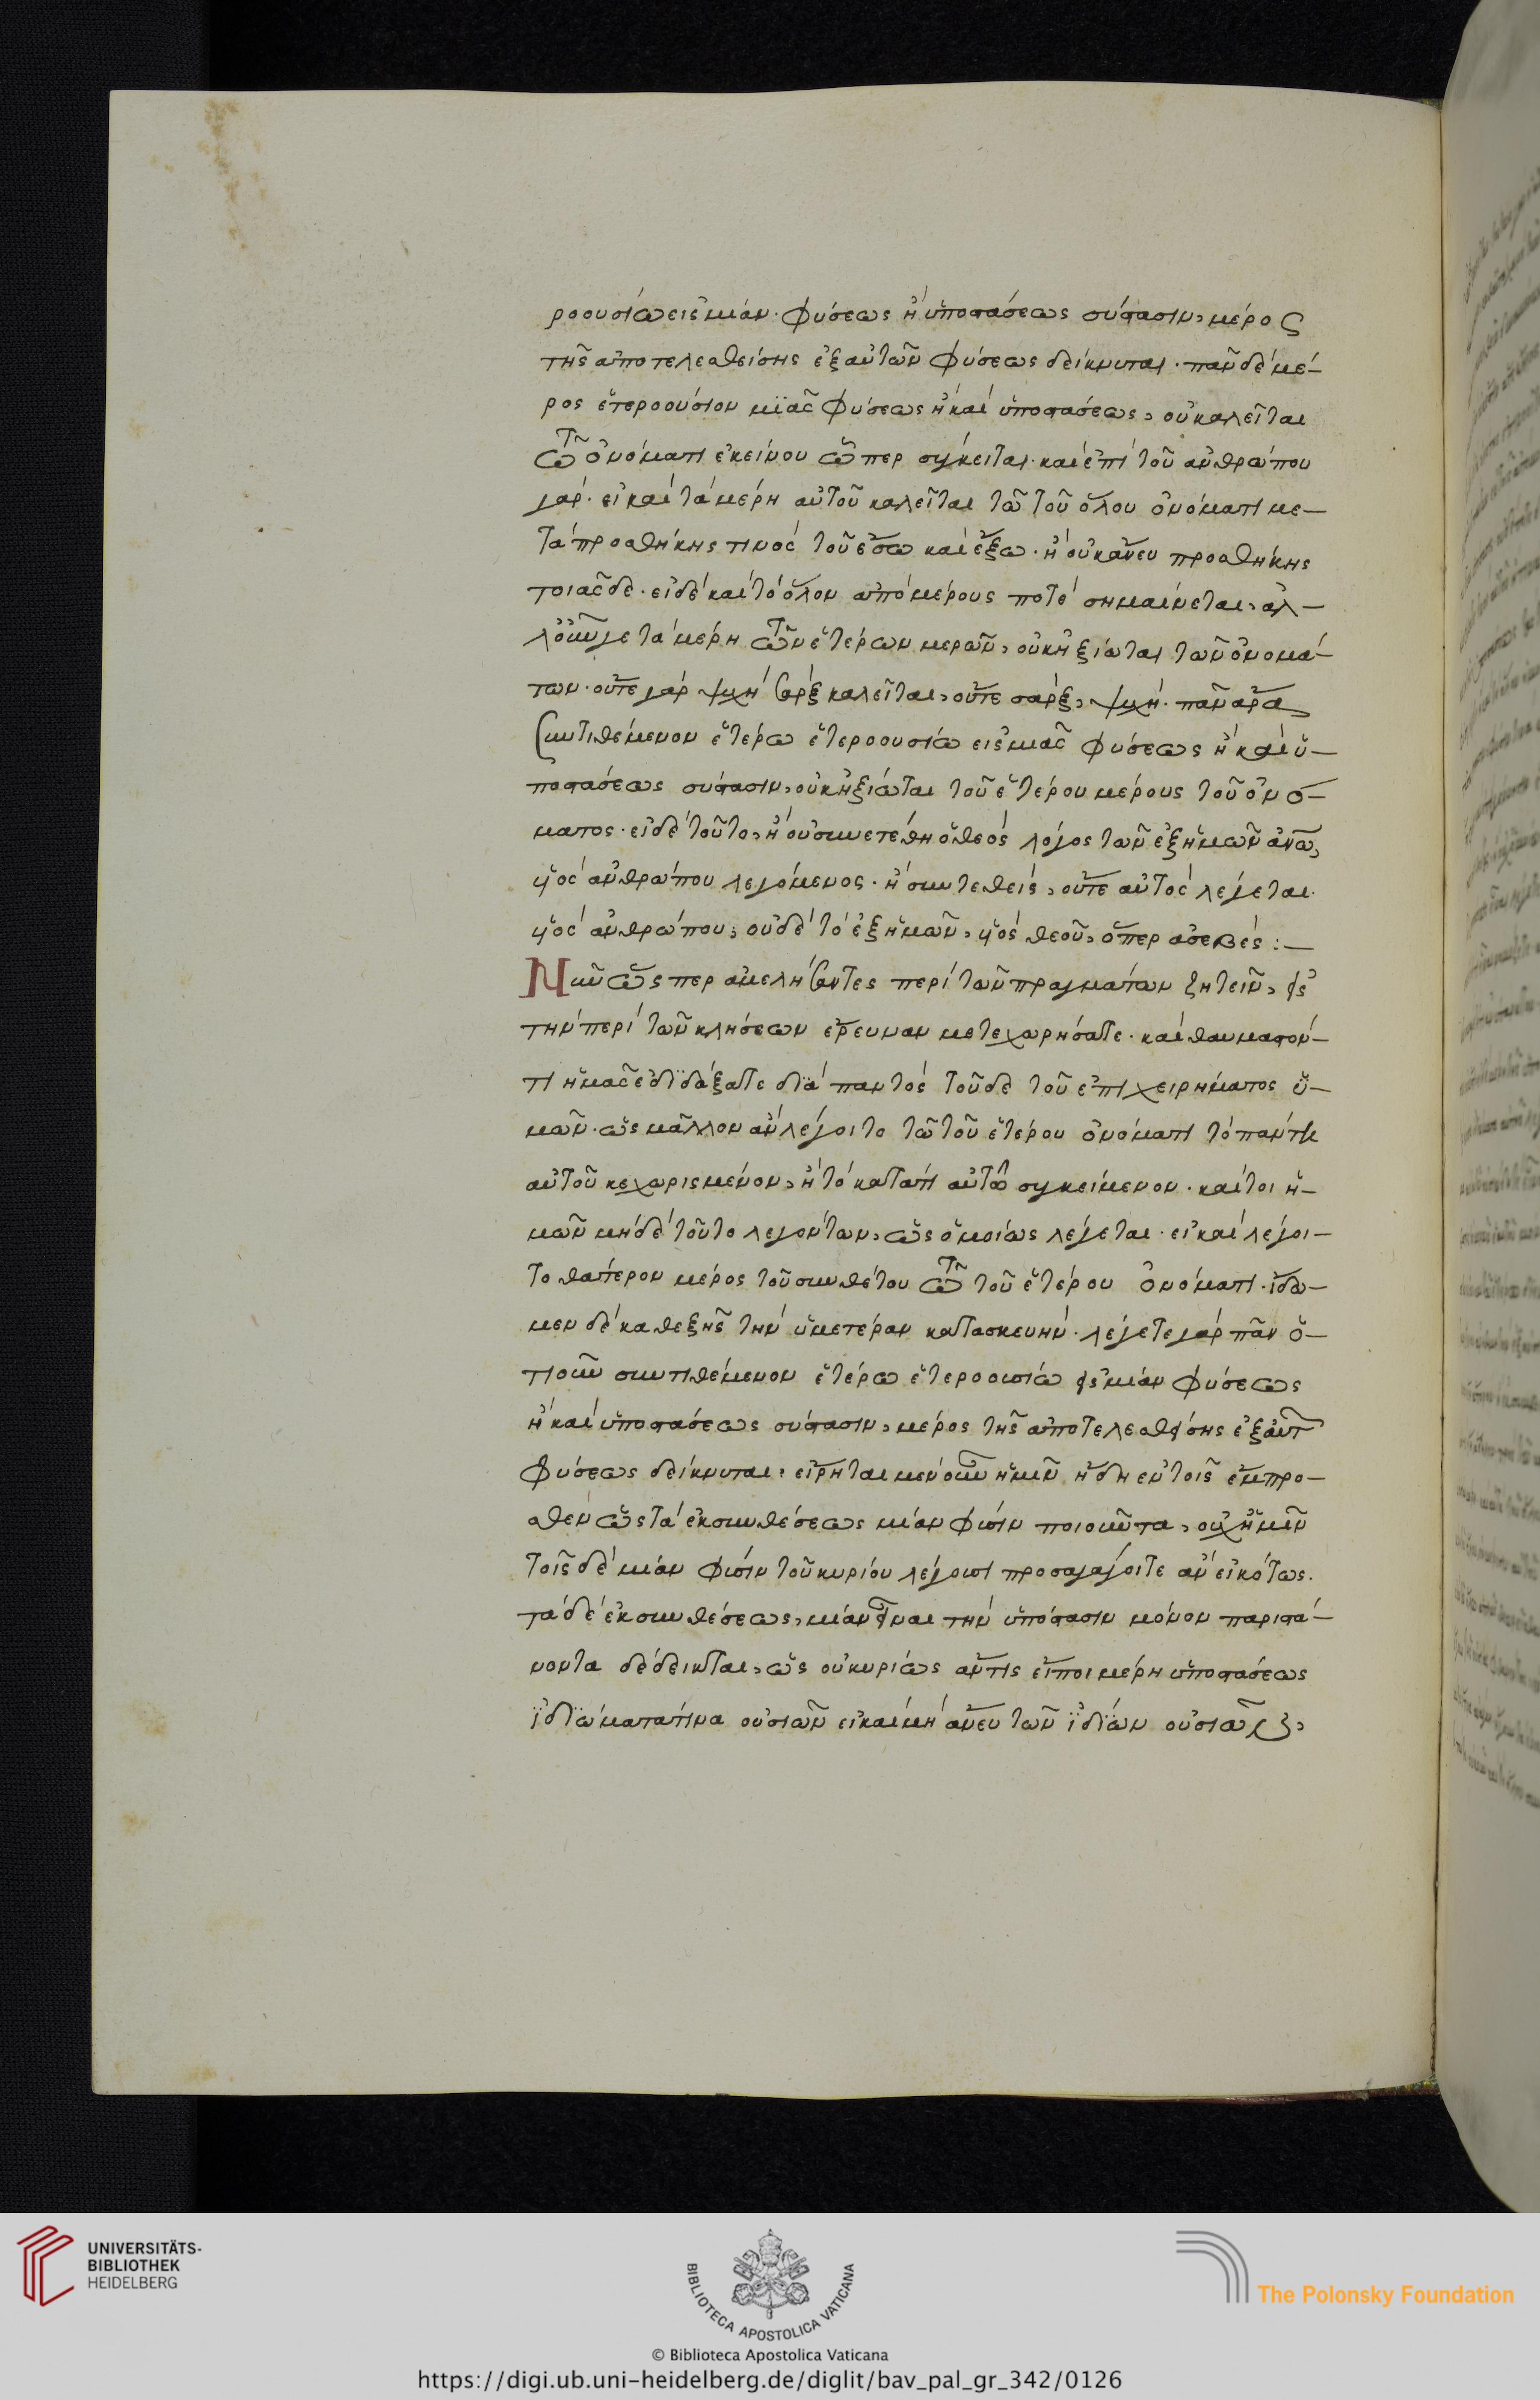 ροουσίω εἰς μίαν. φύσεως ἢ ὑποστάσεως σύστασιν, μέρος
τῆς ἀποτελεσθείσης ἐξ αὐτῶν φύσεως δείκνυται. πᾶν δὲ μέ–
ρος ἑτεροούσιον μϊᾶς φύσεως ἢ καὶ ὑποστάσεως, οὐ καλεῖται
τῶ ὀνόματι ἐκείνου ὧπερ σύγκειται. καὶ ἐπὶ τοῦ ἀνθρώπου
γάρ. εἰ καὶ τὰ μέρη αὐτοῦ καλεῖται τῶ τοῦ ὅλου ὀνόματι με–
τὰ προσθήκης τινὸς τοῦ ἔσω καὶ ἔξω. ἢ οὐκ ἄνευ προσθήκης
τοιᾶσδε. εἰ δὲ καὶ τὸ ὅλον ἀπὸ μέρους ποτὲ σημαίνεται, ἀλ–
λ' οὖν γε τὰ μέρη τῶν ἑτέρων μερῶν, οὐκ ἠξίωται τῶν ὀνομά–
των. οὔτε γὰρ ψυχὴ σὰρξ καλεῖται, οὔτε σὰρξ, ψυχή. πᾶν ἄρα
συντιθέμενον ἑτέρω ἑτεροουσίω εἰς μιᾶς φύσεως ἢ καὶ ὑ–
ποστάσεως σύστασιν, οὐκ ἠξίωται τοῦ ἑτέρου μέρους τοῦ ὀνό–
ματος. εἰ δὲ τοῦτο, ἢ οὐ συνετέθη ὁ θεὸς λόγος τῶν ἐξ ἡμῶν ἀνω,
υἱὸς ἀνθρώπου λεγόμενος. ἢ συντεθεὶς, οὔτε αὐτὸς λέγεται
υἱὸς ἀνθρώπου, οὐδὲ τὸ ἐξ ἡμῶν, υἱὸς θεοῦ, ὅπερ ἀσεβές :–
Νῦν ὥσπερ ἀμελήσαντες περὶ τῶν πραγμάτων ζητεῖν, εἰς
τὴν περὶ τῶν κλήσεων ἔρευναν μετεχωρήσατε. καὶ θαυμαστόν–
τι ἡμᾶς ἐδϊδάξατε δϊὰ παντὸς τοῦδε τοῦ ἐπιχειρήματος ὑ–
μῶν. ὡς μᾶλλον ἂν λέγοιτο τῶ τοῦ ἑτέρου ὀνόματι τὸ πάντη
αὐτοῦ κεχωρισμένον, ἢ τὸ κατάτι αὐτῶ συγκείμενον. καίτοι ἡ–
μῶν μηδὲ τοῦτο λεγόντων, ὡς ὁμοίως λέγεται. εἰ καὶ λέγοι–
το θάτερον μέρος τοῦ συνθέτου τῶ τοῦ ἑτέρου ὀνόματι. ἴδω–
μεν δὲ καθεξῆς τὴν ὑμετέραν κατασκευήν. λέγετε γάρ πᾶν ὁ–
τιοῦν συντιθέμενον ἑτέρω ἑτεροουσίω εἰς μίαν φύσεως
ἢ καὶ ὑποστάσεως σύστασιν, μέρος τῆς ἀποτελεσθείσης ἐξ αὐτ
φύσεως δείκνυται, εἴρηται μὲν οὖν ἡμῖν ἤδη ἐν τοῖς ἔμπρο–
σθεν ὡς τὰ ἐκ συνθέσεως μίαν φύσιν ποιοῦντα, οὐχ ἡμῖν
τοῖς δὲ μίαν φύσιν τοῦ κυρίου λέγουσι προσαγάγοιτε ἂν εἰκότως.
τὰ δὲ ἐκ συνθέσεως, μίαν εἶναι τὴν ὑπόστασιν μόνον παριστά–
νοντα δέδεικται, ὡς οὐ κυρίως ἄν τις εἴποι μέρη ὑποστάσεως
ἰδϊώματά τινα οὐσιῶν εἰ καὶ μὴ ἄνευ τῶν ἰδϊών οὐσιῶν
UNIVERSITÄTS-
BIBLIOTHEK
HEIDELBERG
BIBLIOTECA APOSTOLICA VATICANA
The Polonsky Foundation
© Biblioteca Apostolica Vaticana
https://digi.ub.uni-heidelberg.de/diglit/bav_pal_gr_342/0126